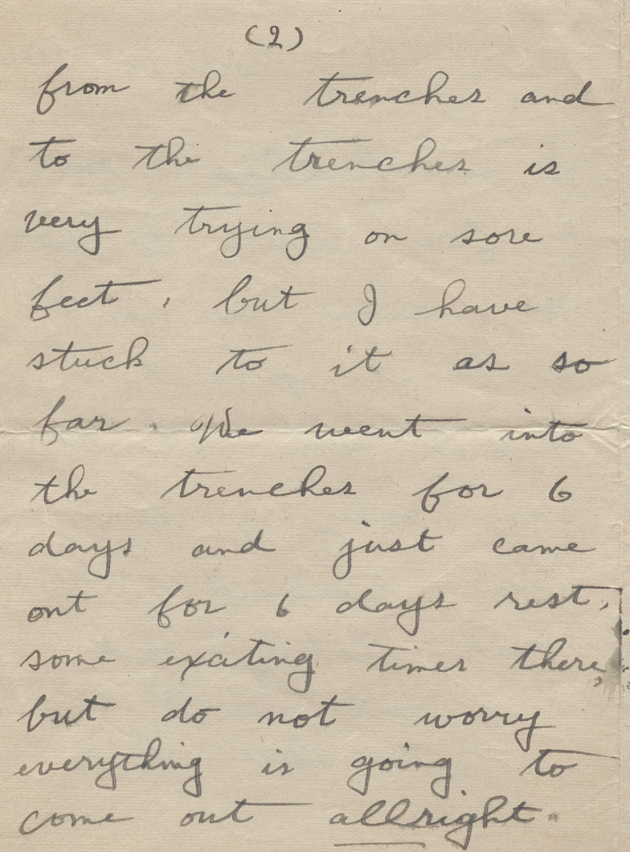 (2)
from the trenches and
to the trenches is
very trying on sore
feet, but I have
stuck to it as so
far. We went into
the trenches for 6
days and just came
out for 6 days rest,
some exciting times there,
but do not worry
everything is going to
come out allright.